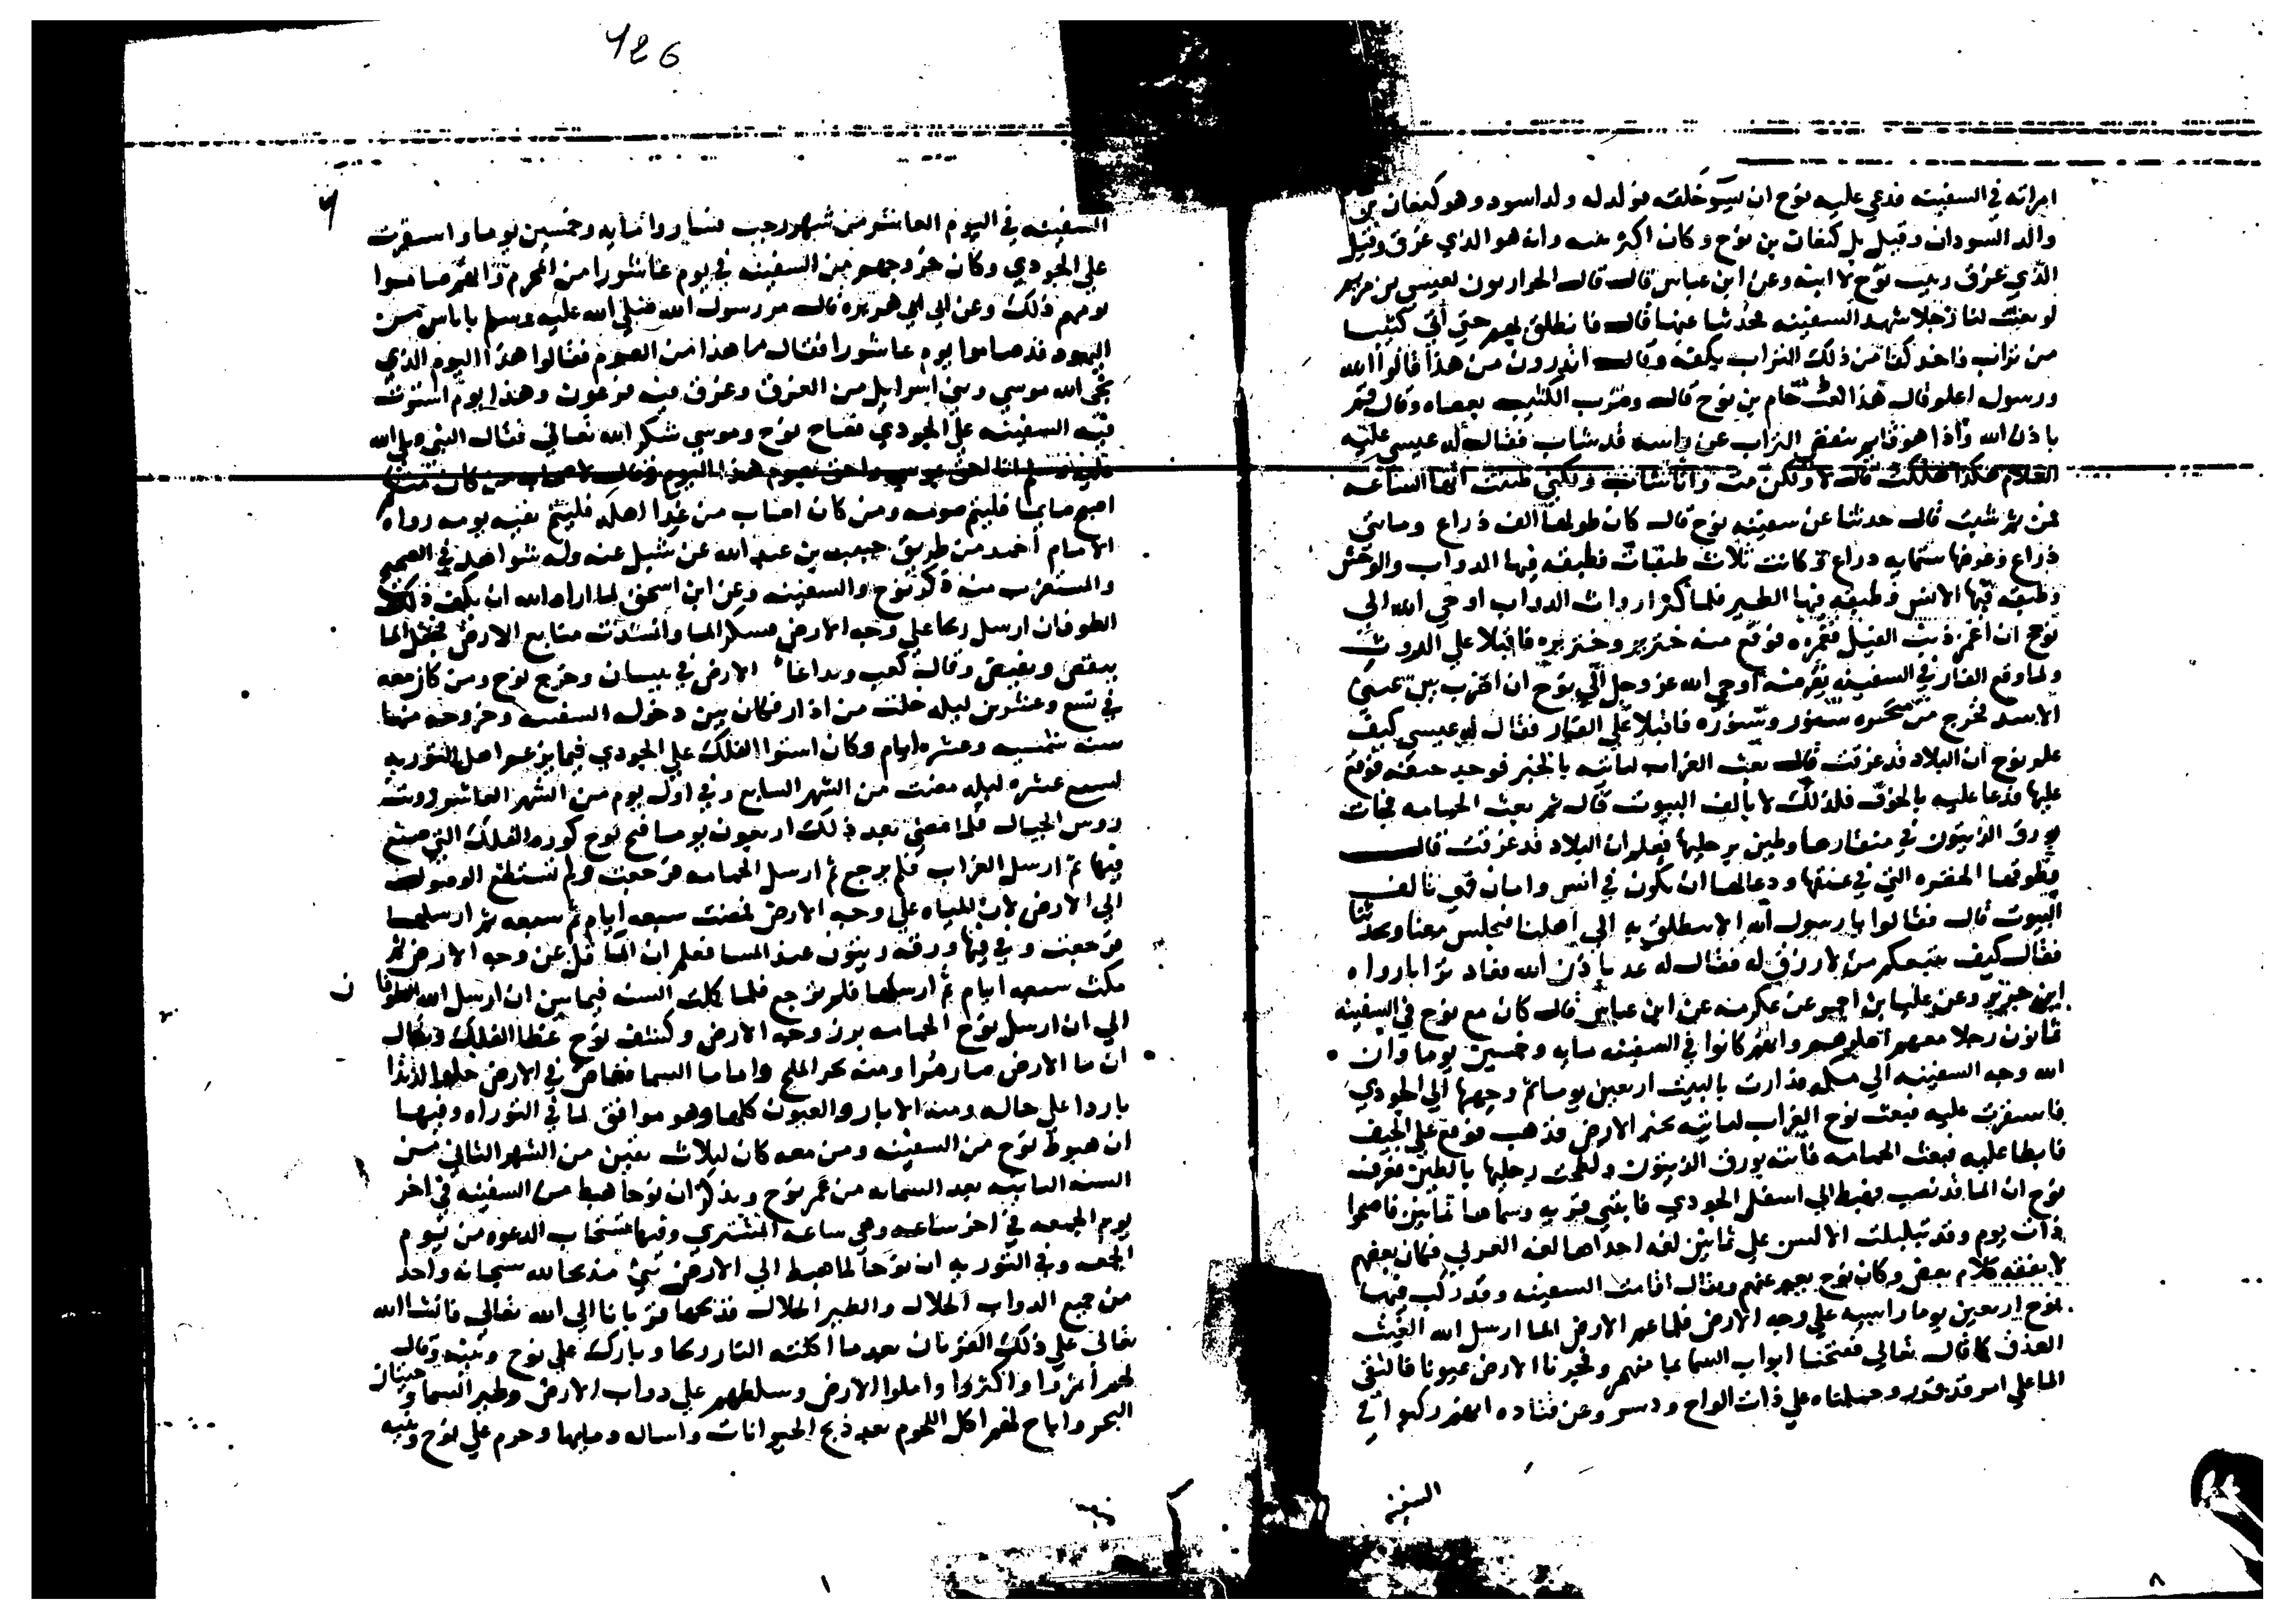 امراته في السفينه فدعي عليه نوح ان يسو خلقه فولد له ولد اسود وهو كنعان بن
والد السودان وقيل بل كنعان بن نوح وكان اكبر منه وانه هو الذي غرق وقيل
الذي غرق ربيب نوح لا ابنه وعن ابن عباس قال قال الحواريون لعيسي بن مريم
لو بعثت لنا رجلا شهد السفينه يحدثنا عنها قال فانطلق بهم حتي اتي كثيبا
من تراب فاخذ كفا من ذلك التراب بكفه وقال اتدرون من هذا قالوا الله
ورسوله اعلم قال هذا كعب حام بن نوح قال وضرب الكثيب بعصاه وقال قم
باذن الله فاذا هو قايم ينفض التراب عن راسه قد شاب فقال له عيسي عليه
السلام هكذا هلكت قال لا ولكن مت وانا شاب ولكني ظننت انها الساعه
فمن ثم شبت قال حدثنا عن سفينه نوح قال كان طولها الف ذراع ومايتي
ذراع وعرضها ستمايه دراع وكانت ثلاث طبقات فطبقه فيها الدواب والوحش
وطبقه فيها الانس وطبقه فيها الطير فلما كثر اروات الدواب اوحي الله الي
نوح ان اغمز ذنب الفيل فغمزه فوقع منه خنزير وخنزيره فاقبلا علي الروث
ولما وقع الفار في السفينه يقرضه اوحي الله عز وجل الي نوح ان اضرب بين عيني
الاسد فخرج من منخره سنور وسنوره فاقبلا علي الفار فقال له عيسي كيف
علم نوح ان البلاد قد غرقت قال بعث الغراب لياتيه بالخبر فوجد جيفه فوقع
عليها فدعا عليه بالخوف فلذلك لا يالف البيوت قال ثم بعث الحمامه فجات
بورق الزيتون في منقارها وطين برجليها فعلم ان البلاد قد غرقت قال
فطوقها الخضره التي في عنقها ودعا لها ان تكون في انس وامان فهي تالف
البيوت قال فقالوا يا رسول الله الا ننطلق به الي اهلنا فيجلس معنا ويحدثنا
فقال كيف يتبعكم من لا رزق له فقال له عد باذن الله فعاد ترابا رواه
ابن جرير وعن عليا بن احمر عن عكرمه عن ابن عباس قال كان مع نوح في السفينه
ثمانون رجلا معهم اهلوهم وانهم كانوا في السفينه مايه وخمسين يوما وان
الله وجه السفينه الي مكه فدارت بالبيت اربعين يوما ثم وجهها الي الجودي
فاستقرت عليه فبعث نوح الغراب لياتيه بخبر الارض فذهب فوقع علي الجيف
فابطا عليه فبعث الحمامه فاتته بورق الزيتون ولطخت رجليها بالطين فعرف
نوح ان الما قد نصب فهبط الي اسفل الجودي فابتني قريه وسماها ثمانين فاصبحوا
ذات يوم وقد تبلبلت الالسن علي ثمانين لغه احداها لغه العربي فكان بعضهم
لا يفقه كلام بعض وكان نوح يعبر عنهم ويقال اقامت السفينه وقد ركب فيها
نوح اربعين يوما راسيه علي وجه الارض فلما عم الارض الما ارسل الله الغيث
الغدق كما قال تعالي ففتحنا ابواب السما بما منهمر وفجرنا الارض عيونا فالتقي
الما علي امر قد قدر وحملناه علي ذات الواح ودسر وعن قتاده انهم ركبوا في
السفينه
426
السفينه في اليوم العاشر من شهر رجب فساروا مايه وخمسين يوما واستقرت
علي الجودي وكان خروجهم من السفينه في يوم عاشورا من المحرم وانهم صاموا
يومهم ذلك وعن ابي هريره قال مر رسول الله صلي الله عليه وسلم باناس من
اليهود قد صاموا يوم عاشورا فقال ما هذا من الصوم فقالوا هذا اليوم الذي
نجي الله موسي وبني اسرايل من الغرق وغرق فيه فرعون وهذا يوم استوت
فيه السفينه علي الجودي فصام نوح وموسي شكر الله تعالي فقال النبي صلي الله
عليه وسلم انا احق بموسي واحق بصوم هذا اليوم وقال لاصحابه من كان منكم
اصبح صايما فليتم صومه ومن كان اصاب من غدا اهله فليتم بقيه يومه رواه
الامام احمد من طريق حبيب بن عبد الله عن شبل عنه وله شواهد في الصحيح
والمستغرب منه ذكر نوح والسفينه وعن ابن اسحق لما اراد الله ان يكف ذلك
الطوفان ارسل ريحا علي وجه الارض فسكن الما وانسدت منابع الارض فجعل الما
ينقص ويغيض وقال كعب وبداها الارض في نيسان وخرج نوح ومن كان معه
في تسع وعشرين ليله خلت من اذار فكان بين دخوله السفينه وخروجه منها
سنه شمسيه وعشره ايام وكان استوا الفلك علي الجودي فيما يزعم اهل التوريه
لسبع عشره ليله مضت من الشهر السابع وفي اول يوم من الشهر العاشر رويت
روس الجبال فلما مضي بعد ذلك اربعون يوما فتح نوح كوه الفلك التي صنع
فيها ثم ارسل الغراب فلم يرجع ثم ارسل الحمامه فرجعت ولم تستطع الوصول
الي الارض لان المياه علي وجه الارض فمضت سبعه ايام ثم سبعه ثم ارسلها
فرجعت وفي فيها ورقه زيتون عند المسا فعلم ان الما قل عن وجه الارض ثم
مكث سبعه ايام ثم ارسلها فلم ترجع فلما كملت السنه فيما بين ان ارسل الله الطوفان
الي ان ارسل نوح الحمامه برز وجه الارض وكشف نوح غطا الفلك ويقال
ان ما الارض صار مرا ومنه بحر الملح واما ما السما فغاص في الارض حلوا لذيذا
باردا علي حاله ومنه الابار والعيون كلها وهو موافق لما في التوراه وفيها
ان هبوط نوح من السفينه ومن معه كان لثلاث بقين من الشهر الثاني من
السنه الثانيه بعد الستمايه من عمر نوح ويذكر ان نوحا هبط من السفينه في اخر
يوم الجمعه في اخر ساعه وهي ساعه المشتري وفيها تستجاب الدعوه من يوم
الجمعه وفي التوريه ان نوحا لما هبط الي الارض بني مذبحا لله سبحانه واخذ
من جميع الدواب الحلال والطير الحلال فذبحها قربانا الي الله تعالي فانشا الله
تعالي علي ذلك القربان بعد ما اكلته النار ريحا وبارك علي نوح وبنيه وقال
لهم اثمروا واكثروا واملوا الارض وسلطهم علي دواب الارض وطير السما وحيتان
البحر واباح لهم اكل اللحوم بعد ذبح الحيوانات واساله دمايها وحرم علي نوح وبنيه